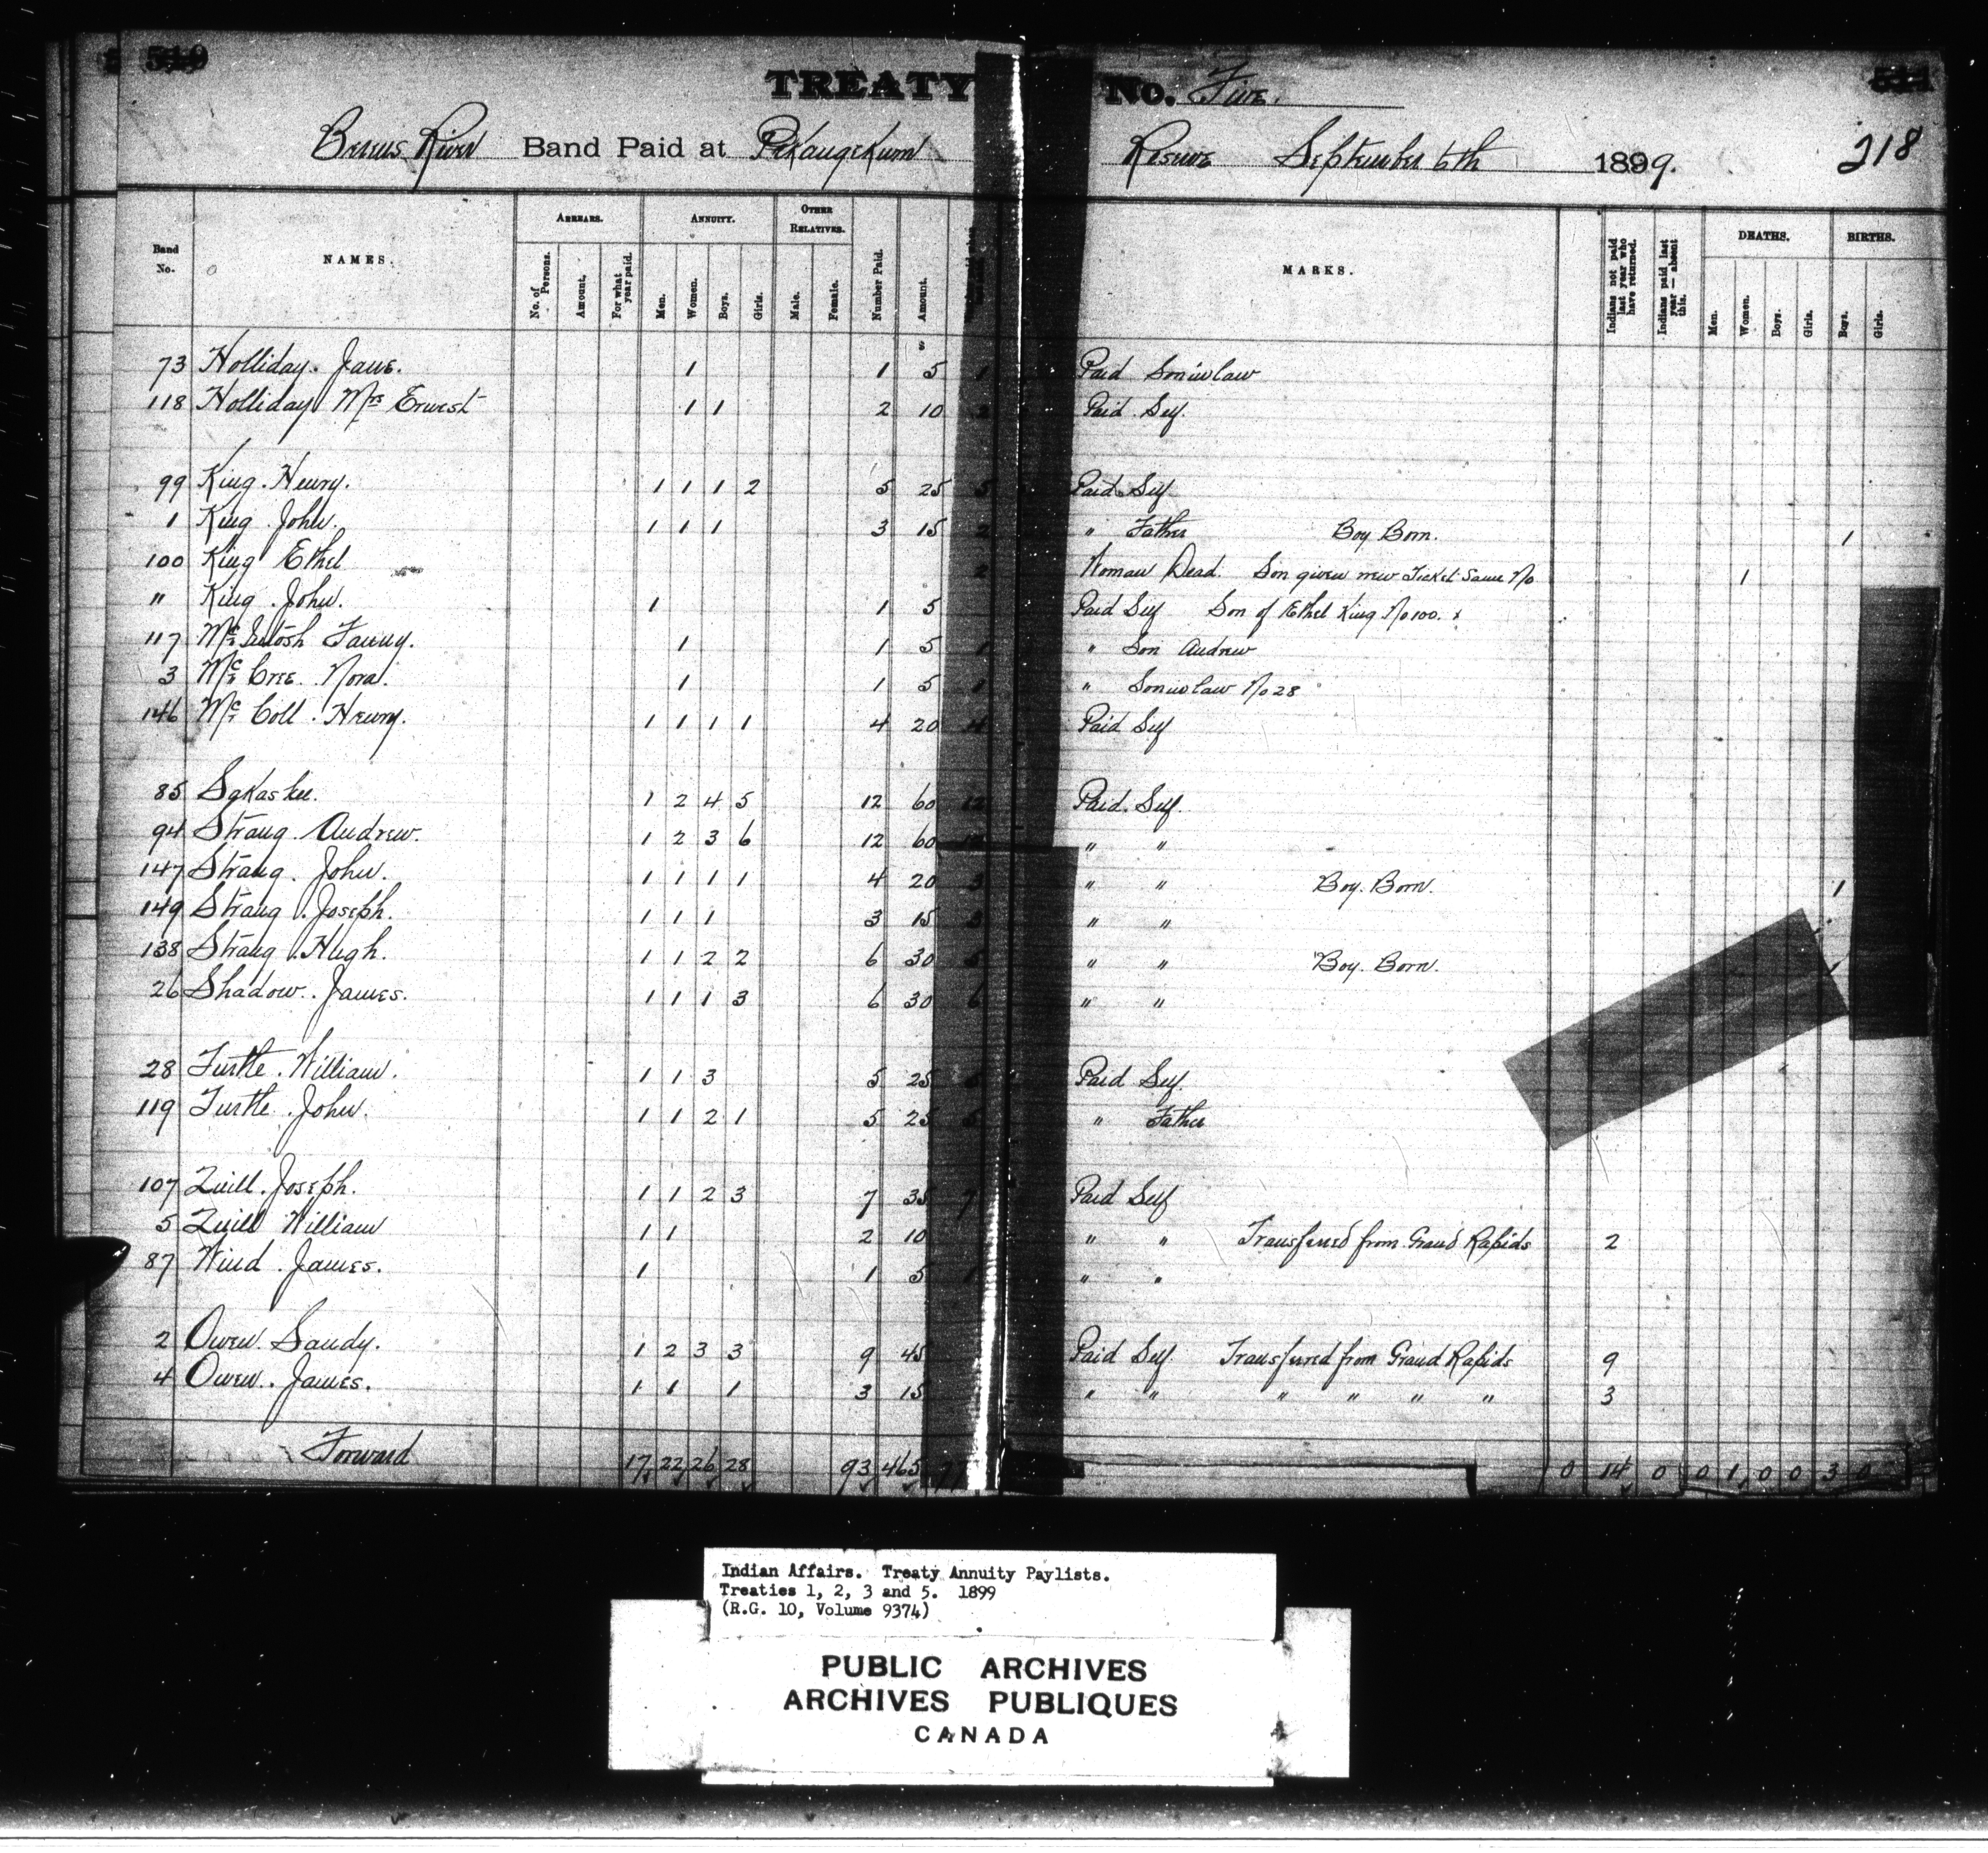 510 TREATY No. Five. 511
Berens River Band Paid at Pekangekum Reserve September 6th 1899. 218
Band No. NAMES. ARREARS. ANNUITY. OTHER RELATIVES. Number Paid. Amount. MARKS. Indians not paid last year who have returned. Indians paid last year — absent this. DEATHS. BIRTHS.
No. of Persons. Amount. For what year paid. Men. Women. Boys. Girls. Male. Female. Men. Women. Boys. Girls. Boys. Girls.
73 Holliday. Jane. 1 1 5 1 Paid Soninlaw
118 Holliday Mrs Ernest 1 1 2 10 2 Paid Self.
99 King. Henry. 1 1 1 2 5 25 5 Paid Self
1 King. John. 1 1 1 3 15 2 " Father Boy Born. 1
100 King Ethel 2 Woman Dead. Son given new Ticket Same No 1
" King. John. 1 1 5 Paid Self Son of Ethel King No 100.
117 McIntosh Fanny. 1 1 5 1 " Son Andrew
3 McCree. Nora. 1 1 5 1 " Soninlaw No 28
146 McColl. Henry. 1 1 1 1 4 20 4 Paid Self
85 Sakaskee. 1 2 4 5 12 60 12 Paid Self.
94 Strang. Andrew. 1 2 3 6 12 60 12 " "
147 Strang. John. 1 1 1 1 4 20 3 " " Boy. Born. 1
149 Strang. Joseph. 1 1 1 3 15 3 " "
138 Strang. Hugh. 1 1 2 2 6 30 5 " " Boy. Born. 1
26 Shadow. James. 1 1 1 3 6 30 6 " "
28 Turtle. William. 1 1 3 5 25 5 Paid Self.
119 Turtle. John. 1 1 2 1 5 25 5 " Father
107 Quill. Joseph. 1 1 2 3 7 35 7 Paid Self
5 Quill William 1 1 2 10 " " Transferred from Grand Rapids 2
87 Wind. James. 1 1 5 1 " "
2 Owen. Sandy. 1 2 3 3 9 45 Paid Self. Transferred from Grand Rapids 9
4 Owen. James. 1 1 1 3 15 " " " " " " 3
Forward 17 22 26 28 93 465 77 0 14 0 0 1 0 0 3 0
Indian Affairs. Treaty Annuity Paylists.
Treaties 1, 2, 3 and 5. 1899
(R.G. 10, Volume 9374)
PUBLIC ARCHIVES
ARCHIVES PUBLIQUES
CANADA